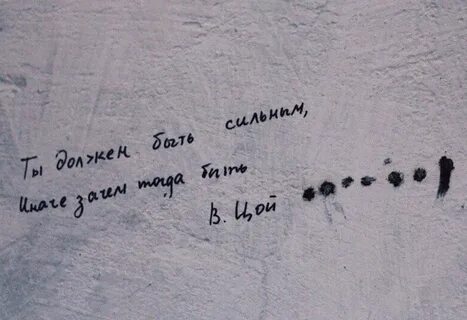 Ты должен быть сильным,
Иначе зачем тогда быть
В. Цой